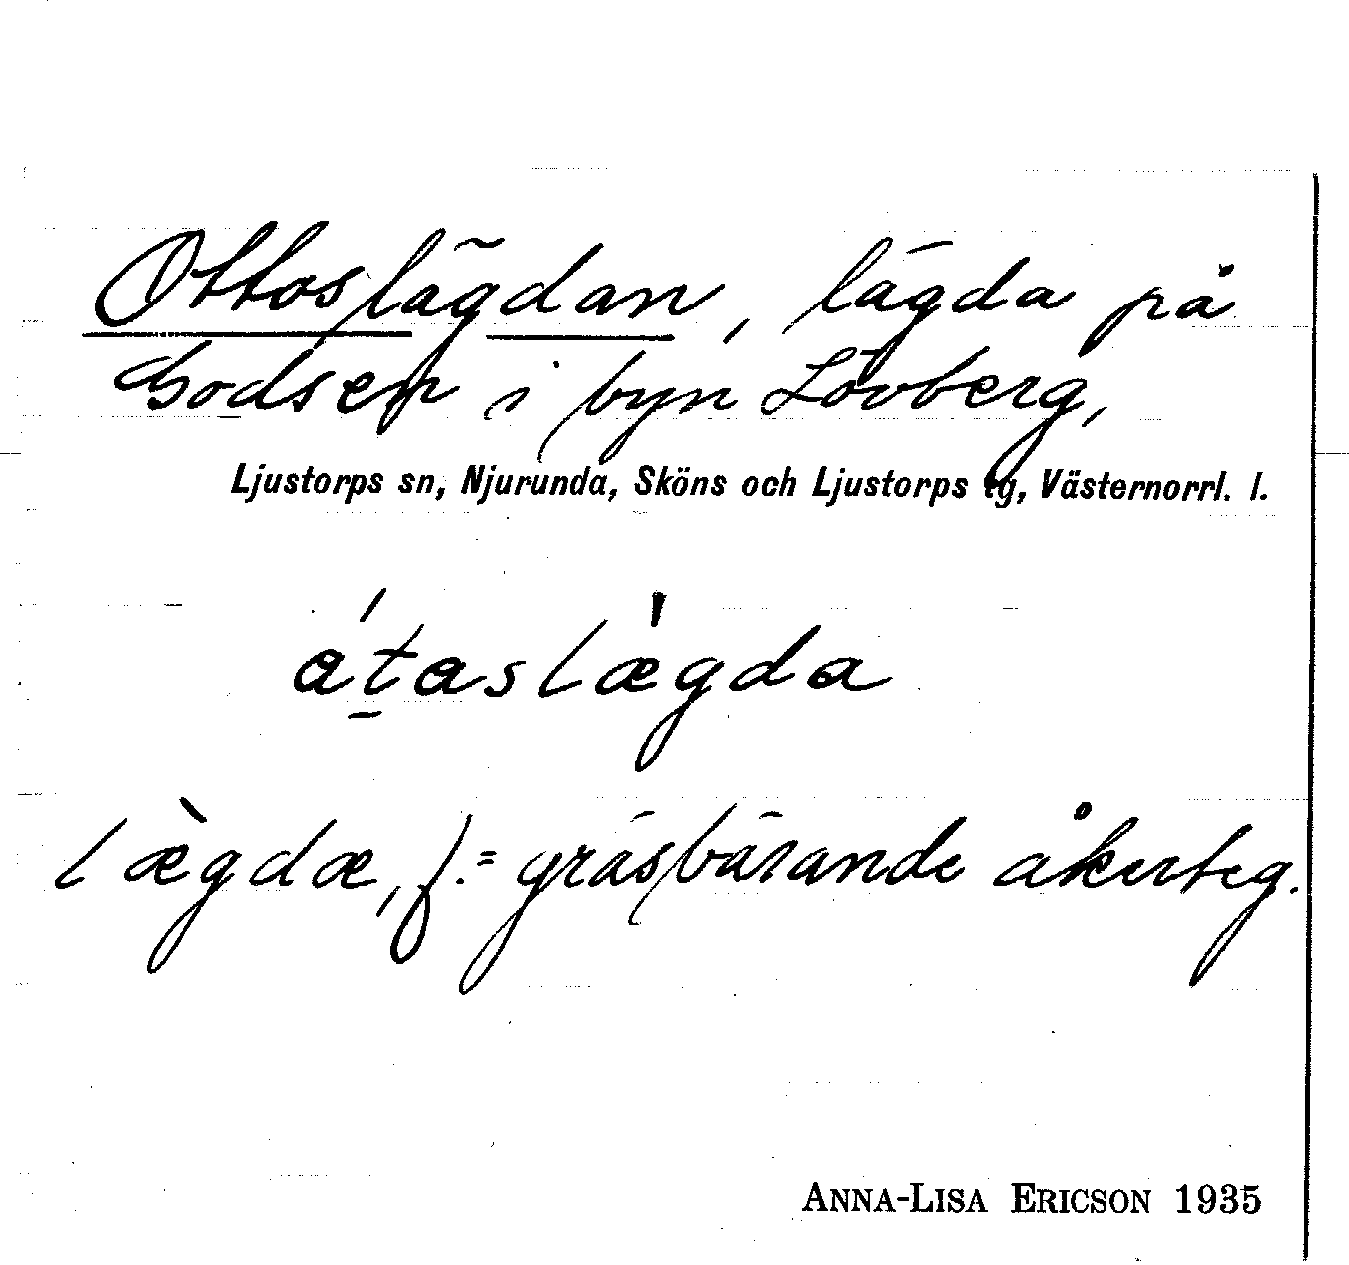 Ottoslägdan, lägda på
Godsen i byn Lövberg,
Ljustorps sn, Njurunda, Sköns och Ljustorps tg, Västernorrl. l.
átaslæ̀gda
læ̀gdæ, f. = gräsbärande åkerteg.
ANNA-LISA ERICSON 1935